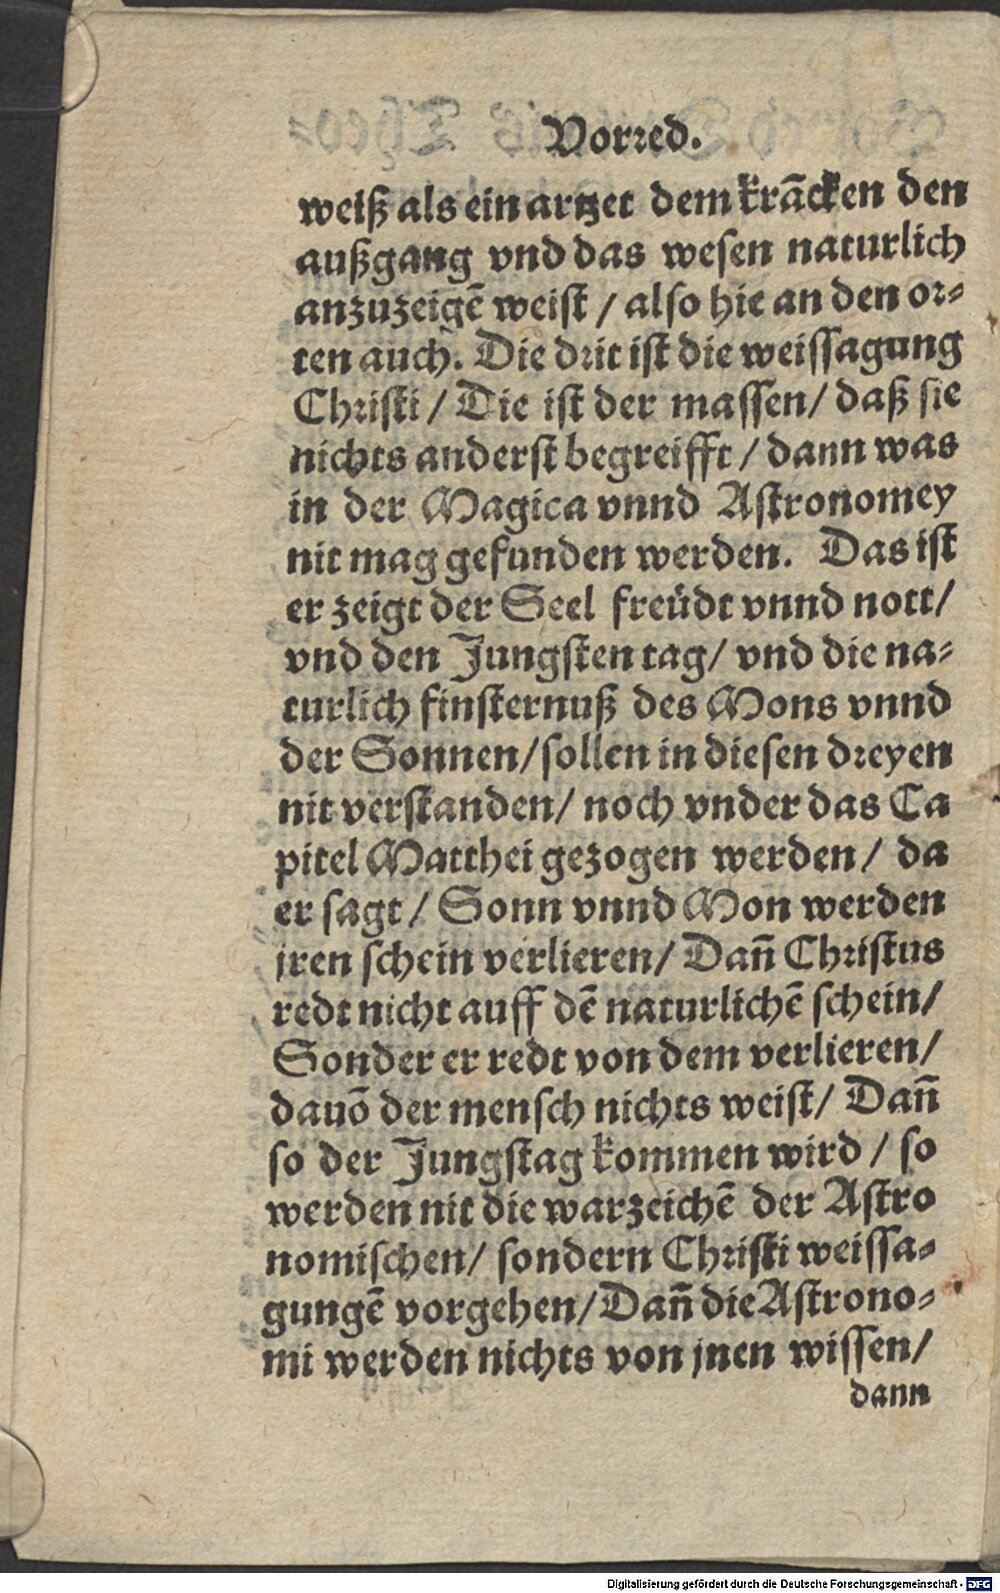 Vorred.
weiß als ein artzet dem krācken den
außgang vnd das wesen naturlich
anzuzeigē weist / also hie an den or⸗
ten auch. Die drit ist die weissagung
Christi / Die ist der massen / daß sie
nichts anderst begreifft / dann was
in der Magica vnnd Astronomey
nit mag gefunden werden. Das ist
er zeigt der Seel freüdt vnnd nott /
vnd den Jungsten tag / vnd die na⸗
turlich finsternuß des Mons vnnd
der Sonnen / sollen in diesen dreyen
nit verstanden / noch vnder das Ca
pitel Matthei gezogen werden / da
er sagt / Sonn vnnd Mon werden
jren schein verlieren / Dañ Christus
redt nicht auff dē naturlichē schein /
Sonder er redt von dem verlieren /
dauō der mensch nichts weist / Dañ
so der Jungstag kommen wird / so
werden nit die warzeichē der Astro
nomischen / sondern Christi weissa⸗
gungē vorgehen / Dañ die Astrono⸗
mi werden nichts von jnen wissen /
dann
Digitalisierung gefördert durch die Deutsche Forschungsgemeinschaft - DFG